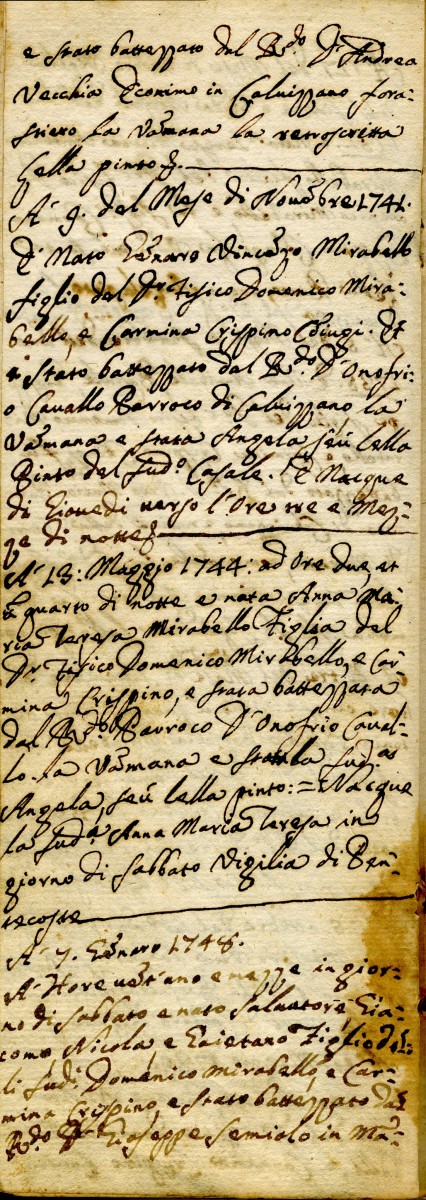 e stato battezzato dal R.do D. Andrea
Vecchia Economo in Calvizzano fora=
stiero la Vãmana la retroscritta
Lella pinto
A' 9. del Mese di Novẽbre 1741.
È Nato Gẽnnaro Vincenzo Mirabello
figlio del Dr. Fisico Domenico Mira=
bello, e Carmina Crispino Cõiugi. Et
è stato battezzato dal R.do D. Onofri=
o Cavallo Parroco di Calvizzano, la
Vãmana e stata Angela seù lella
Pinto del sud.o Casale. E Nacque
di Giovedi verso l'Ore tre e Mez=
ze di notte
A' 13: Maggio 1744: ad Ore due, et
quarto di notte e nata Anna Ma=
ria Teresa Mirabello Figlia del
Dr. Fisico Domenico Mirabello, e Car=
mina Crispino, e stata battezzata
dal R.do Parroco D. Onofrio Caval=
lo la Vãmana e stata la sud.a
Angela, seù lella pinto: = Nacque
la sud.a Anna Maria Teresa in
giorno di sabbato Vigilia di Pen=
tecoste
A' 7. Gẽnnaro 1748.
A' Hore vent'uno e mezze in gior=
no di sabbato e nato Salvatore, Gia=
como Nicola, e Gaietano Figlio de
li sud.i Domenico Mirabello, e Car=
mina Crispino, e stato battezzato dal
R.do D. Gioseppe Semiolo in Ma=